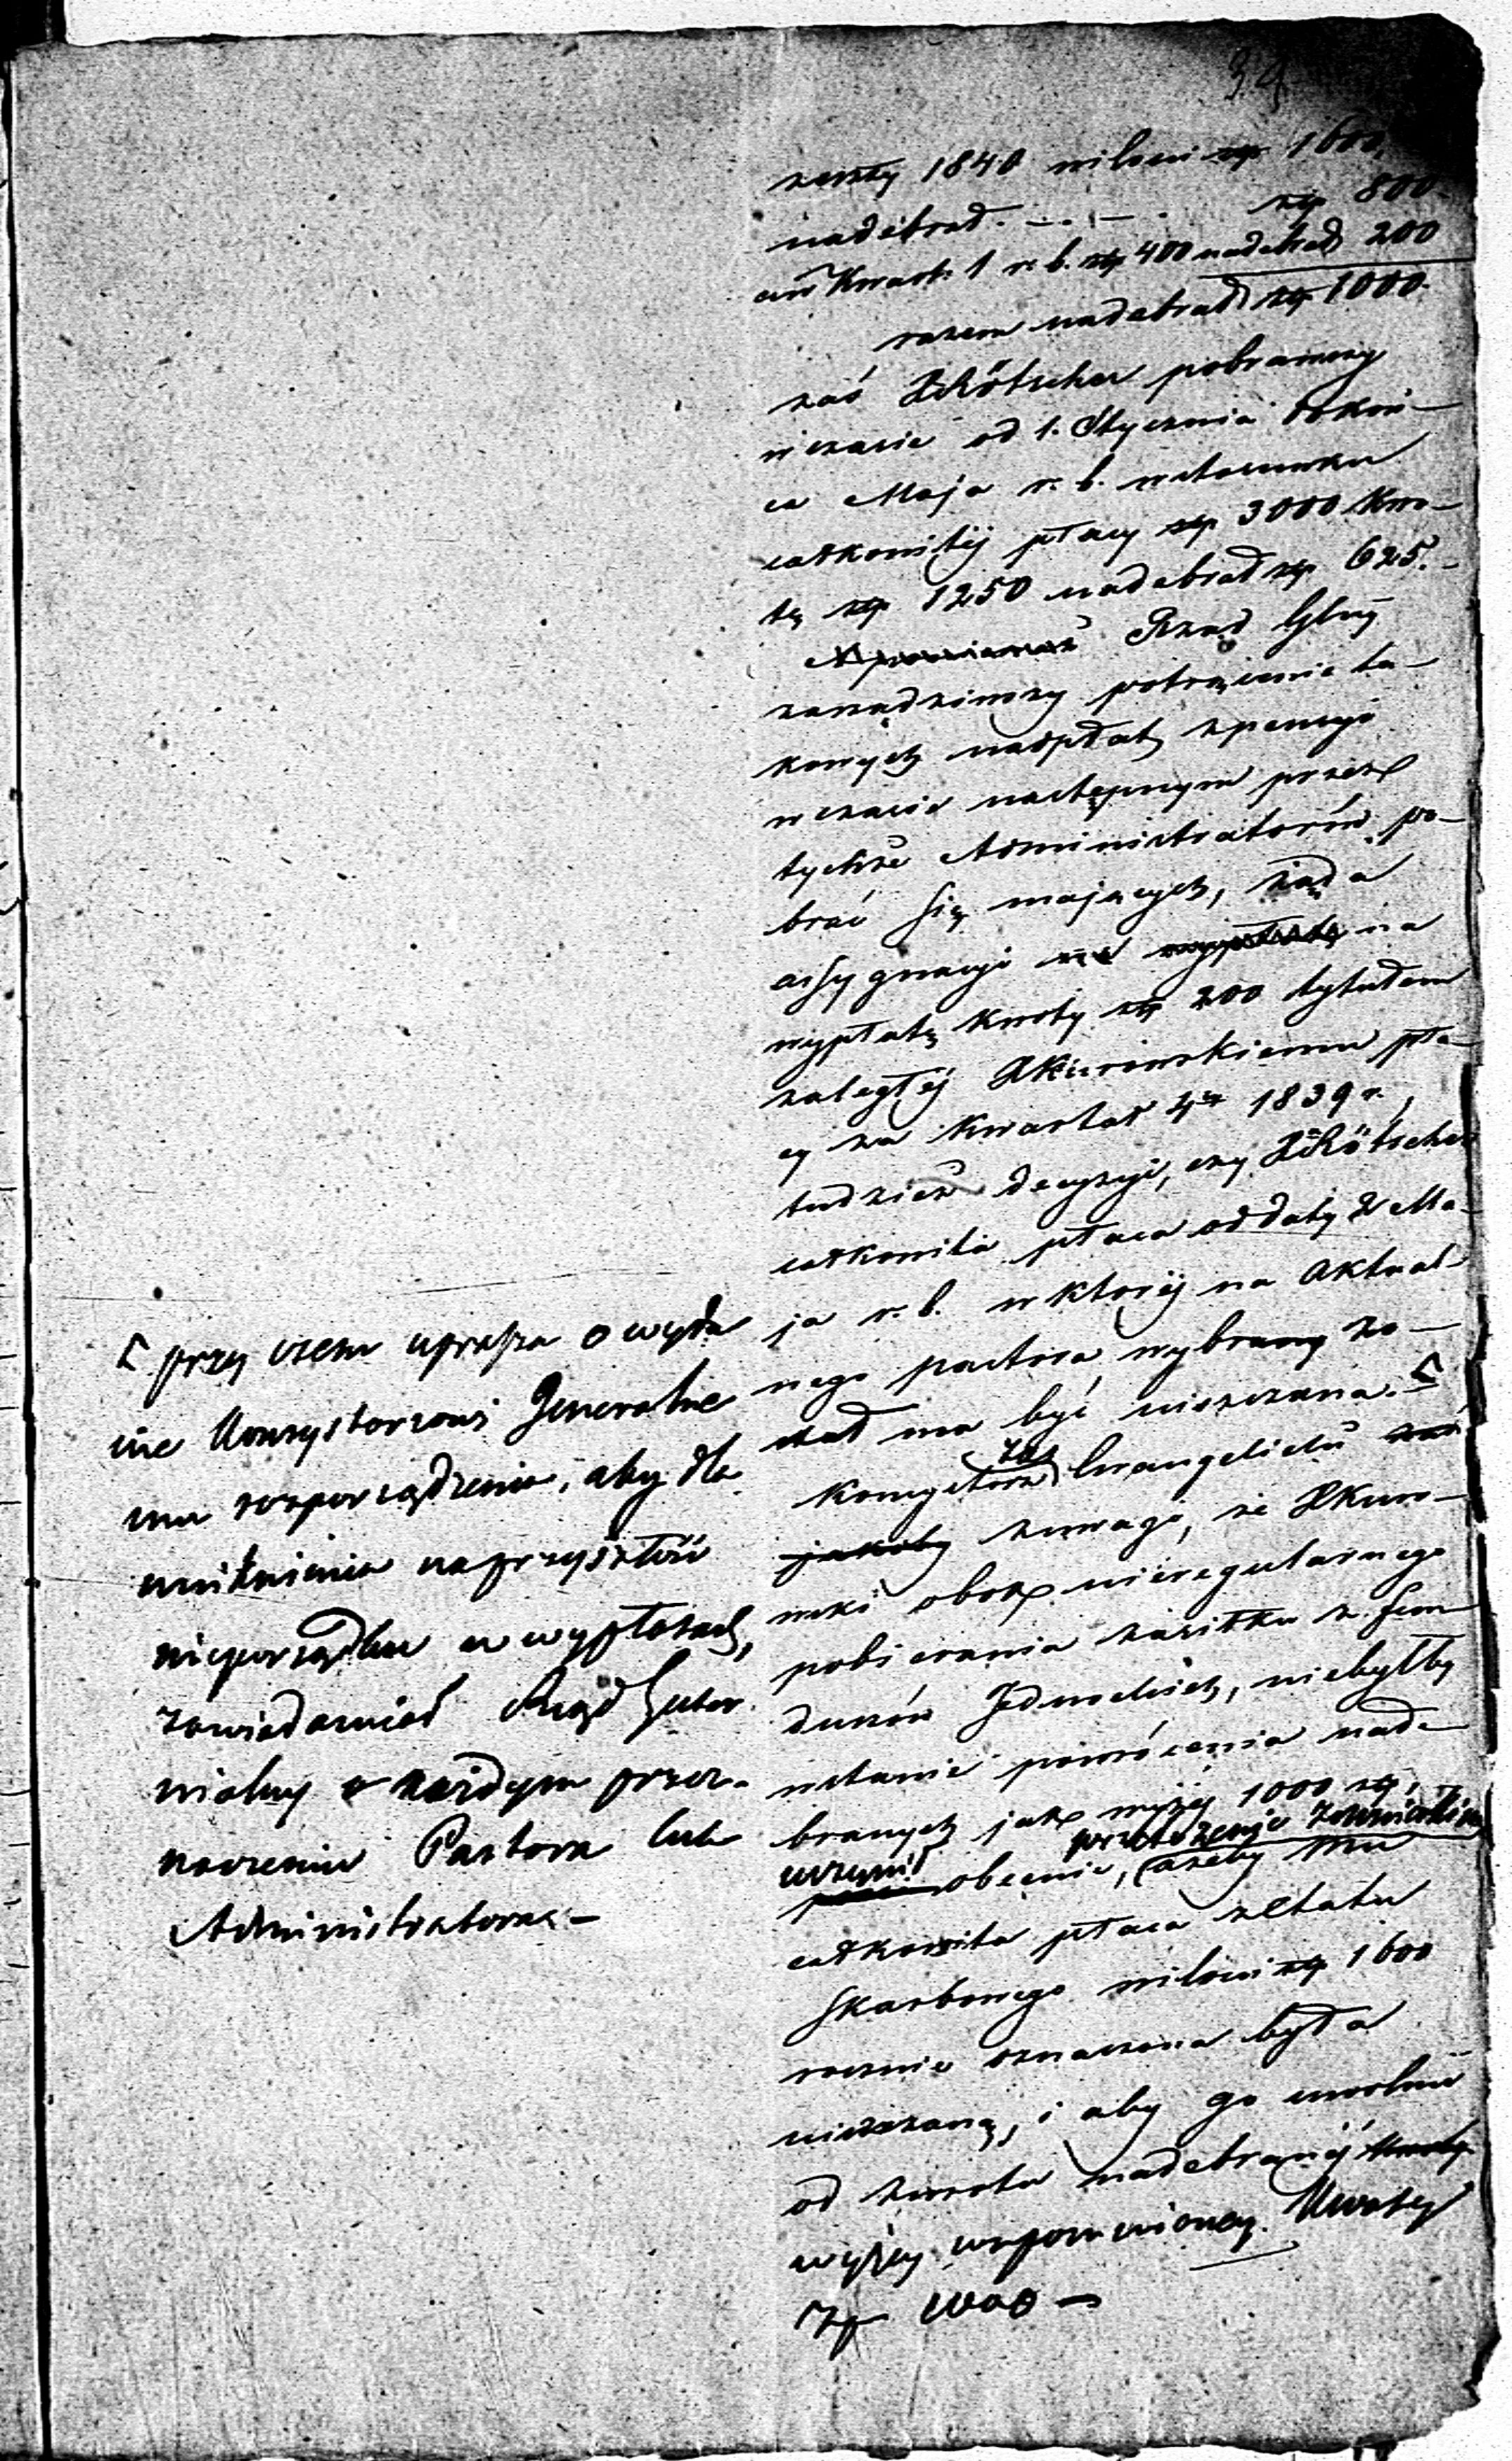 39
zeszły 1840 wilości złp 1600,
nadebrał . — . — . złp 800
a w Kwart. 1 r. b. złp 400 nadebrał 200
razem nadebrał złp 1000.
zaś X Rötscher pobrawszy
w czasie od 1. Stycznia do koń-
ca Maja r. b. w stosunku
całkowitej płacy złp 3000 kwo-
tę złp 1250 nadebrał złp 625. -
Rząd Gbny
zarządziwszy potrącenie ta-
kowych nadpłat z pensyi
w czasie następnym przez
tychże Administratorów po-
brać się mających, żąda
assygnacyi na
wypłatę kwoty złp 200 tytułem
zaległej X Kurowskiemu pła-
cy za kwartał 4ty 1839 r.,
tudzież decyzyi, czy X Rötscher
całkowita płaca od daty 2 Ma-
ja r. b. w której na aktual-
nego pastora wybrany zo-
stał ma być uiszczana. Γ
zaś
Konsystorz Ewangelicki
jakoby z uwagi, że X Kuro-
wski obok nieregularnego
pobierania zasiłku z fun-
duszów Jednockich, niebyłby
w stanie powrócenia nade-
branych jak wyżej 1000 złp,
przełożenie
uczynił obecnie, ażeby mu
całkowita płaca z Etatu
Skarbowego wilości złp 1600
rocznie oznaczona była
uiszczaną, i aby go uwolnić
od zwrotu nadebranej
wyżej wspomnioney Kwoty
Złp 1000 -
Γ przy czem uprasza o wyda
nie Konsystorzowi Generalne
mu rozporządzenia, aby dla
uniknienia na przyszłość
nieporządku w wypłatach,
zawiadamiał Rząd Guber
nialny o każdym przez-
naczeniu Pastora lub
Administratora. -